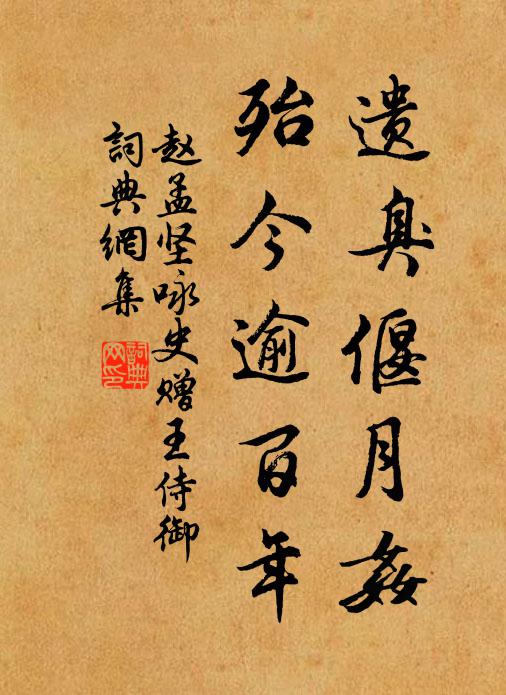 遗臭偃月姦
殆今逾百年
赵孟坚咏史赠王侍御
詞典網集
詞典網印